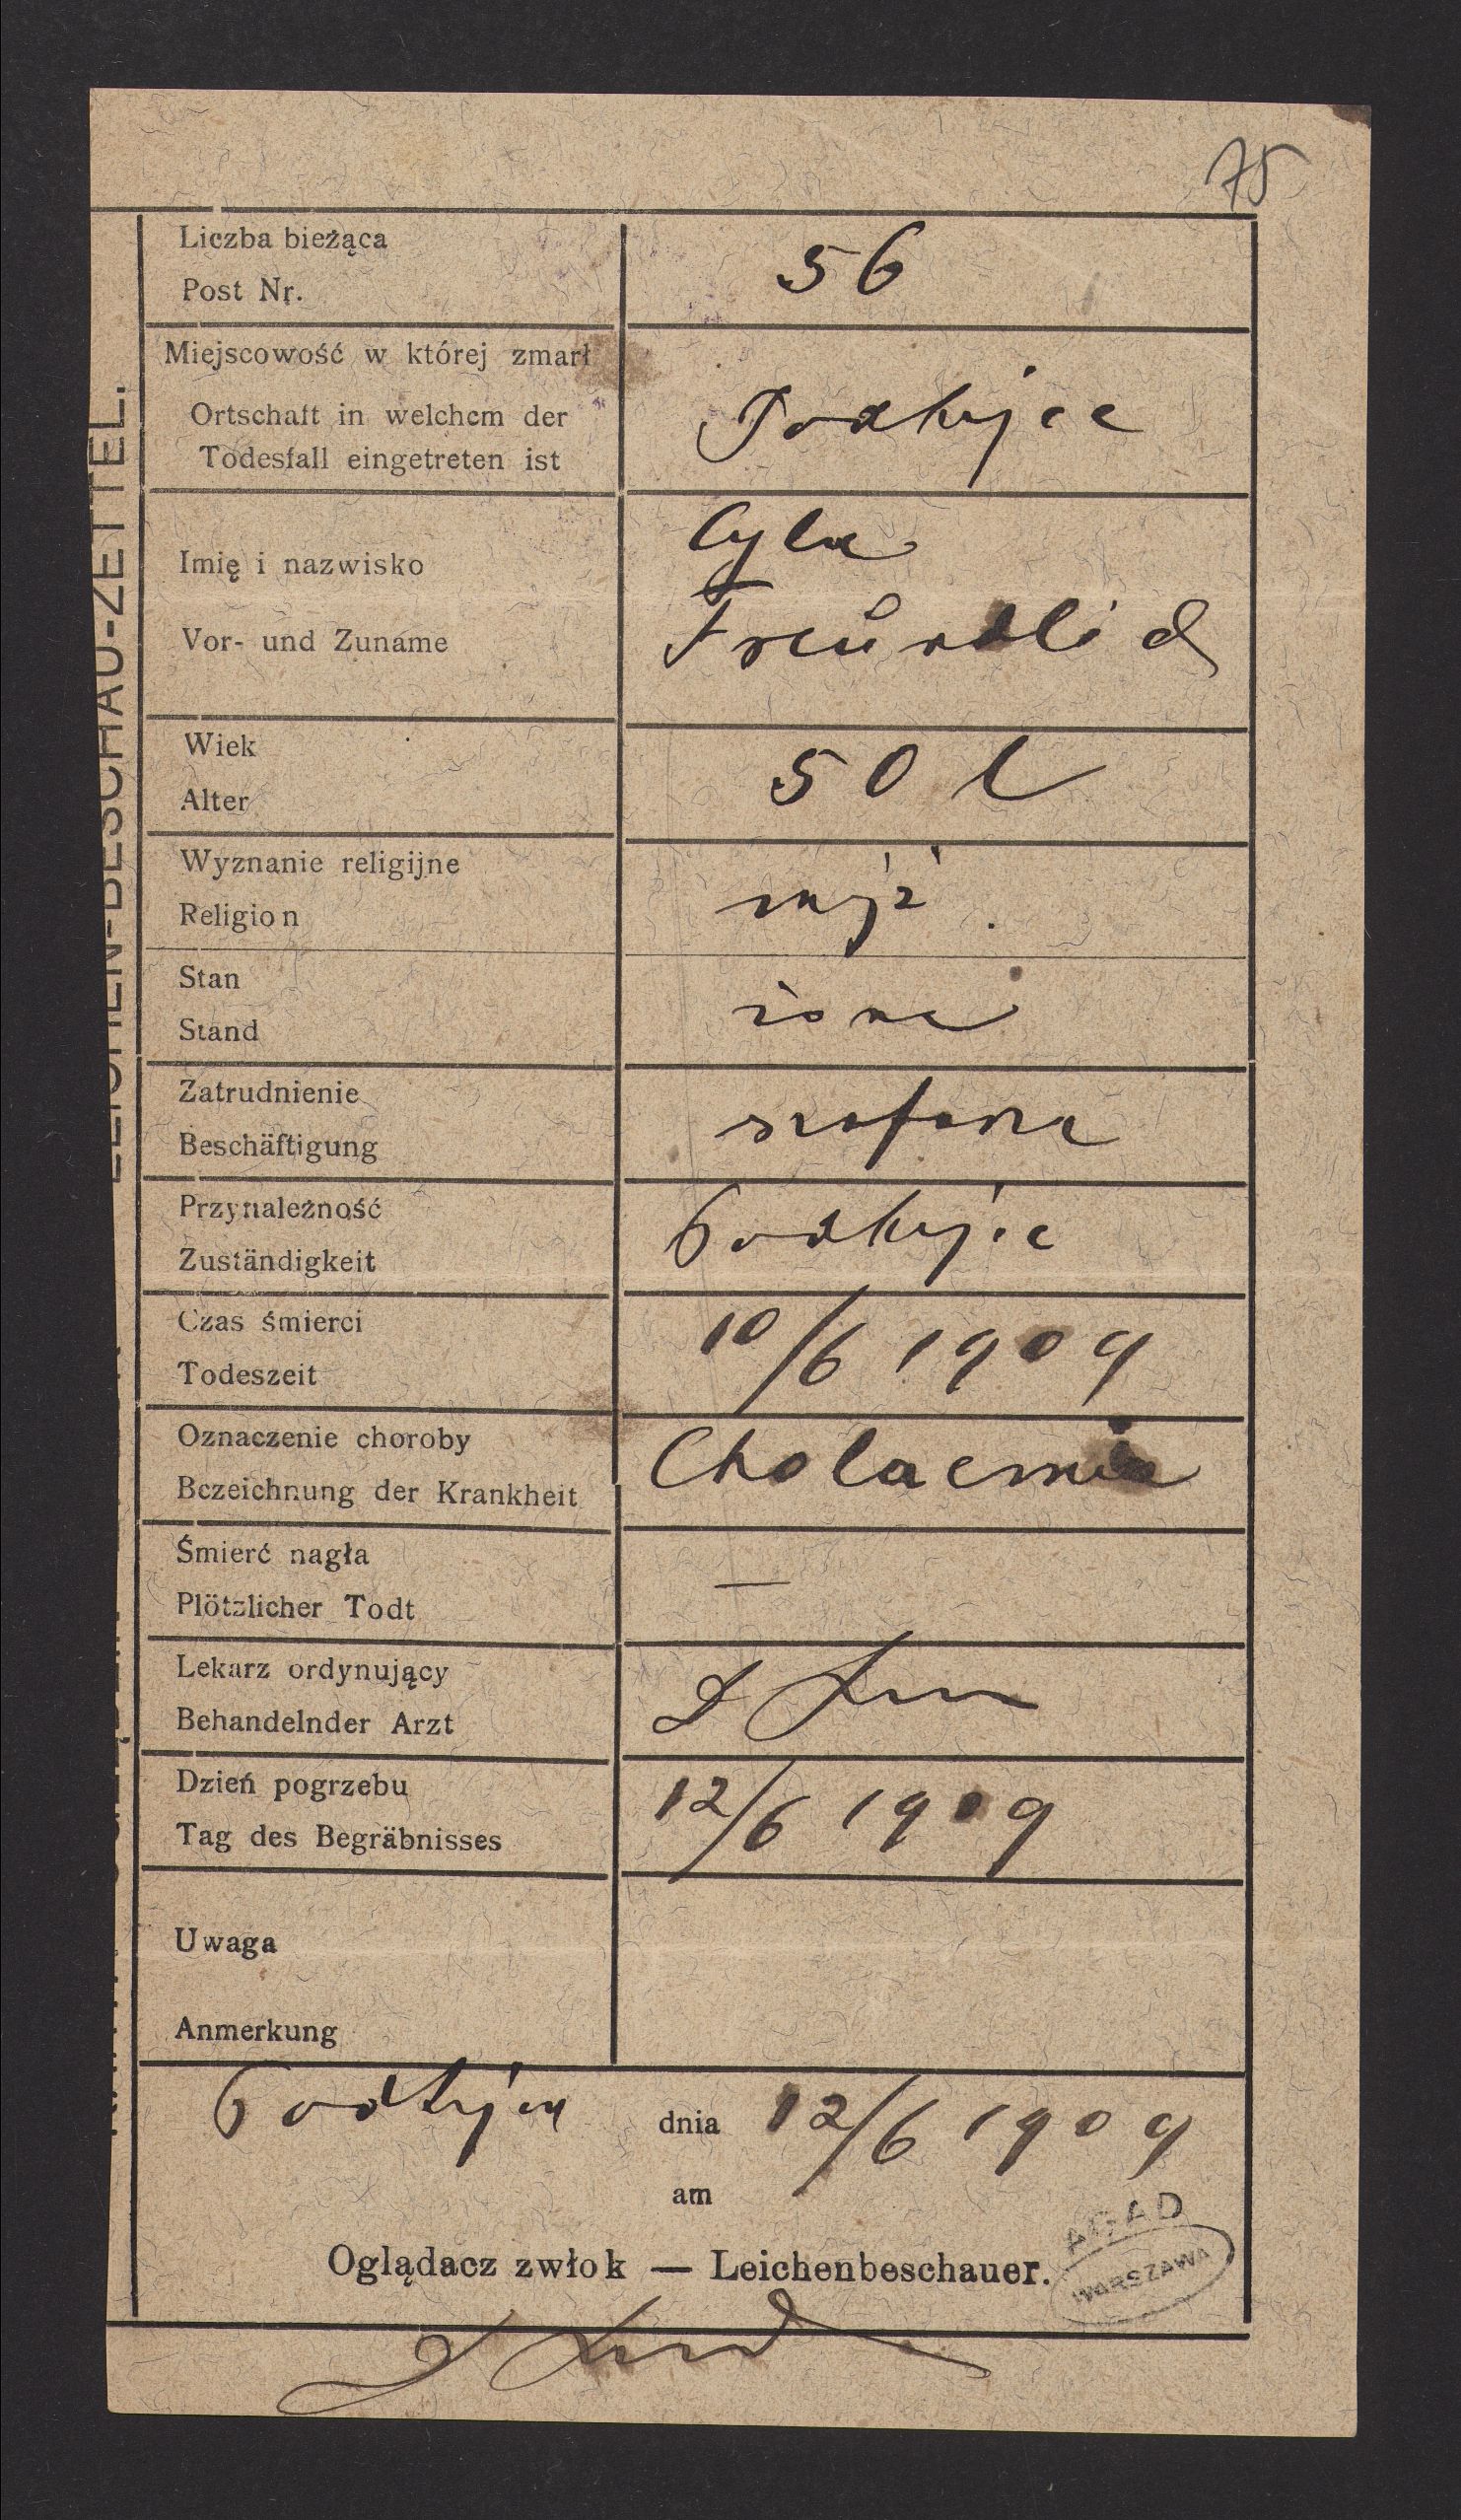 75
LEICHEN-BESCHAU-ZETTEL.
Liczba bieżąca
Post Nr.
56
Miejscowość w której zmarł
Ortschaft in welchem der
Todesfall eingetreten ist
Imię i nazwisko
Vor- und Zuname
Cyla
Freŭndlich
Wiek
Alter
50 l
Wyznanie religijne
Religion
mojż
Stan
Stand
żona
Zatrudnienie
Beschäftigung
Przynależność
Zuständigkeit
Czas śmierci
Todeszeit
10/6 1909
Oznaczenie choroby
Bezeichnung der Krankheit
Cholaemia
Śmierć nagła
Plötzlicher Todt
—
Lekarz ordynujący
Behandelnder Arzt
Dzień pogrzebu
Tag des Begräbnisses
12/6 1909
Uwaga
Anmerkung
dnia 12/6 1909
am
Oglądacz zwłok — Leichenbeschauer.
AGAD
WARSZAWA